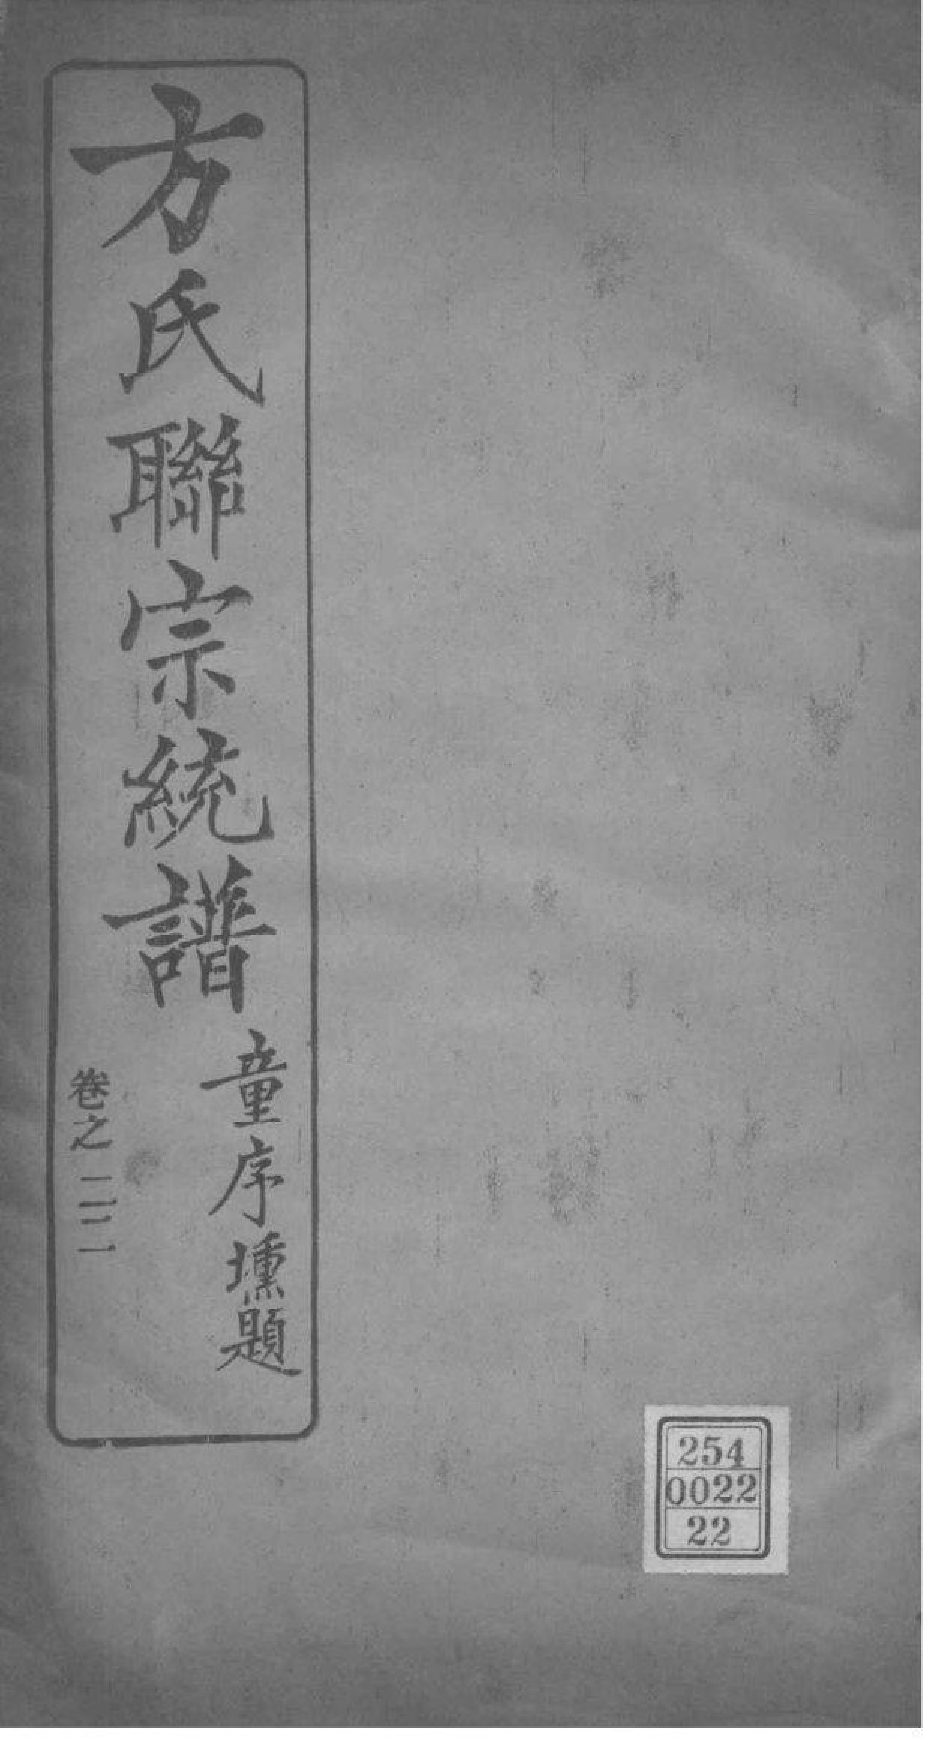 方氏聯宗統譜
童序壎題
卷之二二
254
0022
22